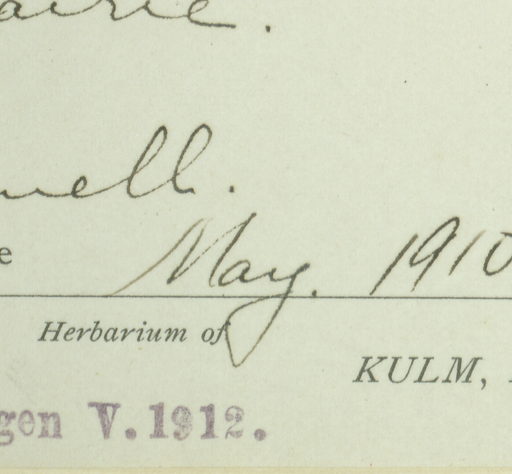 airie.
nell.
e May. 1910
Herbarium of
KULM,
gen V.1912.